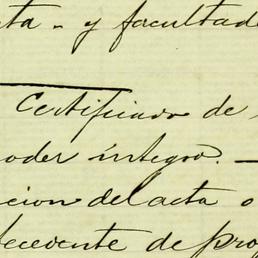 ta - y facultade
Certificado de
oder íntegro. —
cion del acta o
tecedente de pro